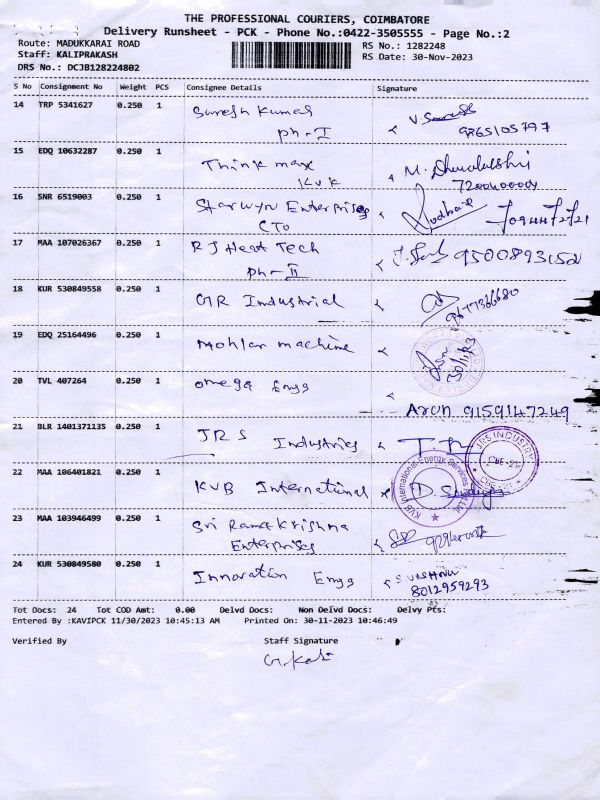 THE PROFESSIONAL COURIERS, COIMBATORE
Delivery Runsheet - PCK - Phone No.:0422-3505555 - Page No.:2
Route: MADUKKARAI ROAD
RS No.: 1282248
Staff: KALIPRAKASH
RS Date: 30-Nov-2023
DRS No.: DCJB128224802
S No Consignment No Weight PCS Consignee Details Signature
14 TRP 5341627 0.250 1 Suresh Kumar
ph-I
9865105797
15 EDQ 10632287 0.250 1 Think max
KVK
M.
16 SNR 6519003 0.250 1 Starwyn Enterprises
CTO
17 MAA 107026367 0.250 1 RJ Heat Tech
ph-II
9500893152
18 KUR 530849558 0.250 1 GR Industrial
9677366680
19 EDQ 25164496 0.250 1 machine
30/11/23
20 TVL 407264 0.250 1 Omega Engg
Arun 9159147249
21 BLR 1401371135 0.250 1 JRS Industries
JRS INDUSTRY
22 MAA 106401821 0.250 1 KVB International
KVB International Energy Services
23 MAA 103946499 0.250 1 Sri Ramakrishna
Enterprises
24 KUR 530849580 0.250 1 Innovation Engg
8012959293
Tot Docs: 24 Tot COD Amt: 0.00 Delvd Docs: Non Delvd Docs: Delvy Pts:
Entered By :KAVIPCK 11/30/2023 10:45:13 AM Printed On: 30-11-2023 10:46:49
Verified By Staff Signature